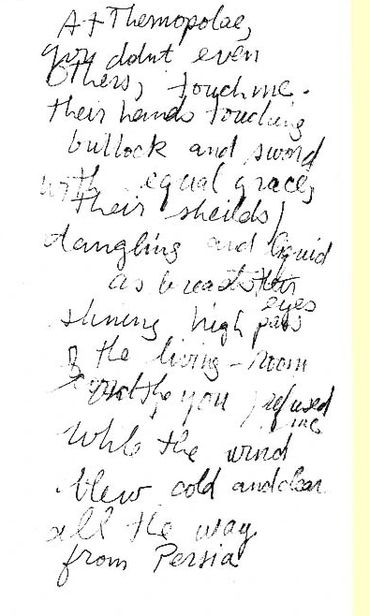 At Themopolae,
you didnt even
Others, touch me.
their hands touching
bullock and sword
with equal grace,
their sheilds
dangling and liquid
as breasts their
eyes
shining high pass
of the living-room
you refused
me
While the wind
blew cold and clear
all the way
from Persia